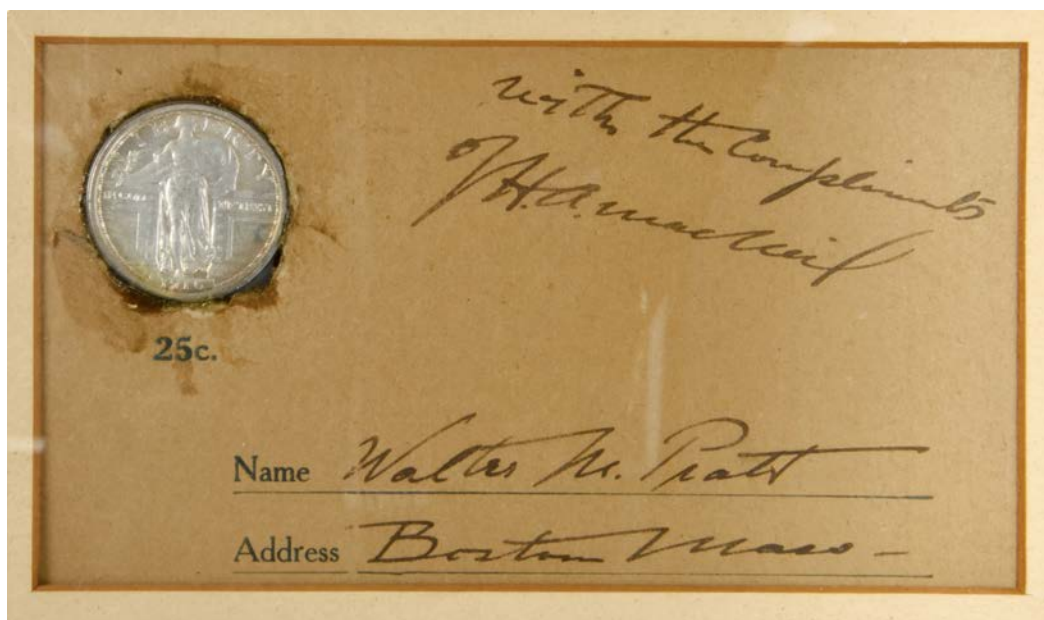 with the Compliments
of H. A. MacNeil
25c.
Name Walter M. Pratt
Address Boston Mass -